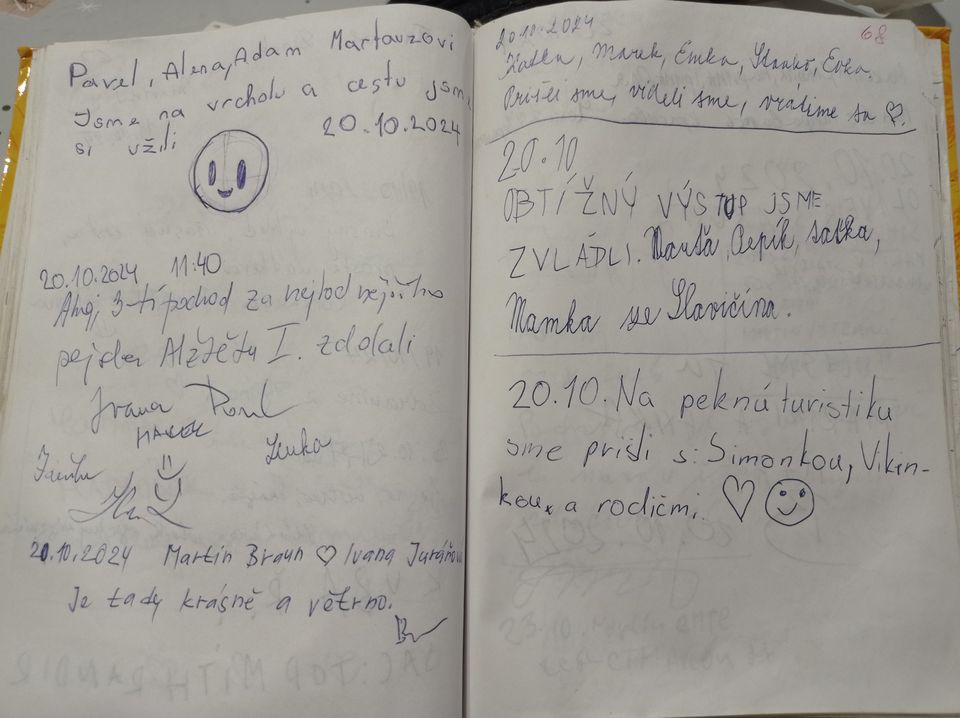 Pavel, Alena, Adam Martauzovi
Jsme na vrcholu a cestu jsme
si užili
20.10.2024
20.10.2024 11:40
Ahoj, 3-tí pochod za
Alžbětu I. zdolali
Ivana
MAREK
Lenka
20.10.2024 Martin Braun ♡ Ivana Juráňová
Je tady krásně a větrno.
68
20.10.2024
Katka, Marek, Emka, Stanko, Evka
Prišli sme, videli sme, vrátime sa ♡.
20.10
OBTÍŽNÝ VÝSTUP JSME
ZVLÁDLI. Pepík, taťka,
Mamka ze Slavičína.
20.10. Na peknú turistiku
sme prišli s: Simonkou, Vikin-
kou a rodičmi. ♡